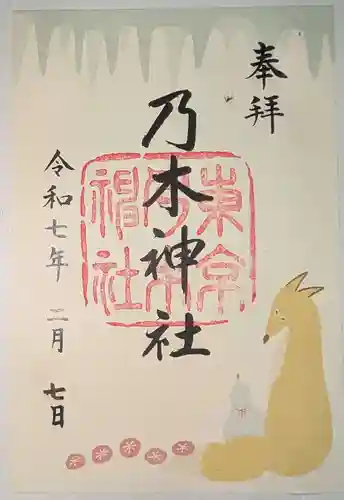 奉拝
乃木神社
東京乃木神社
令和七年 二月 七日